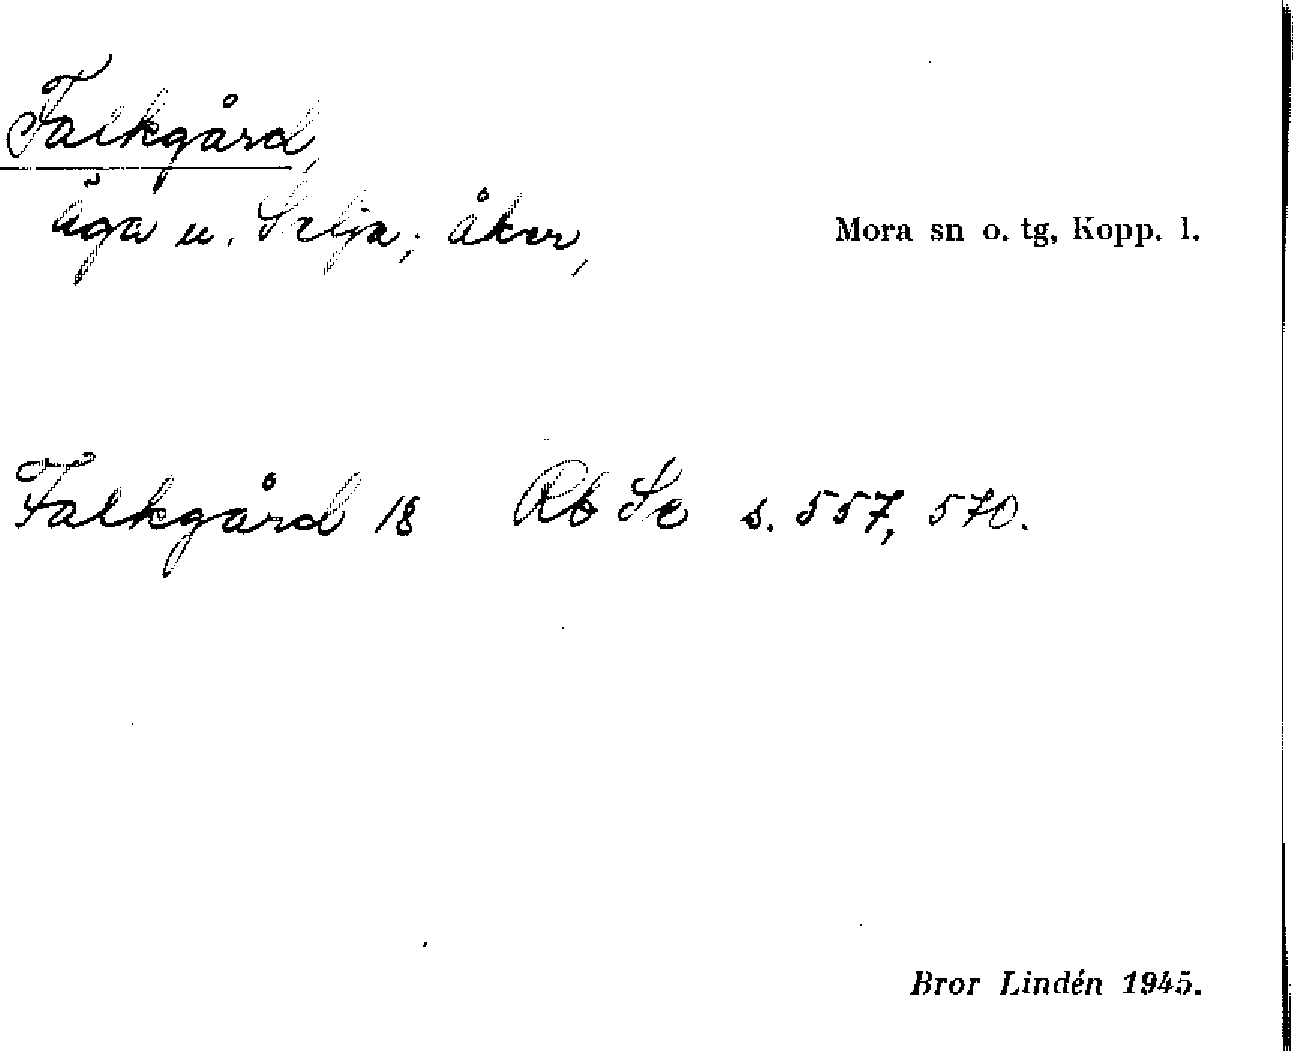 Falkgård,
äga u. Selja; åker,
Mora sn o. tg, Kopp. l.
Falkgård 18 Rb Se s. 557, 570.
Bror Lindén 1945.